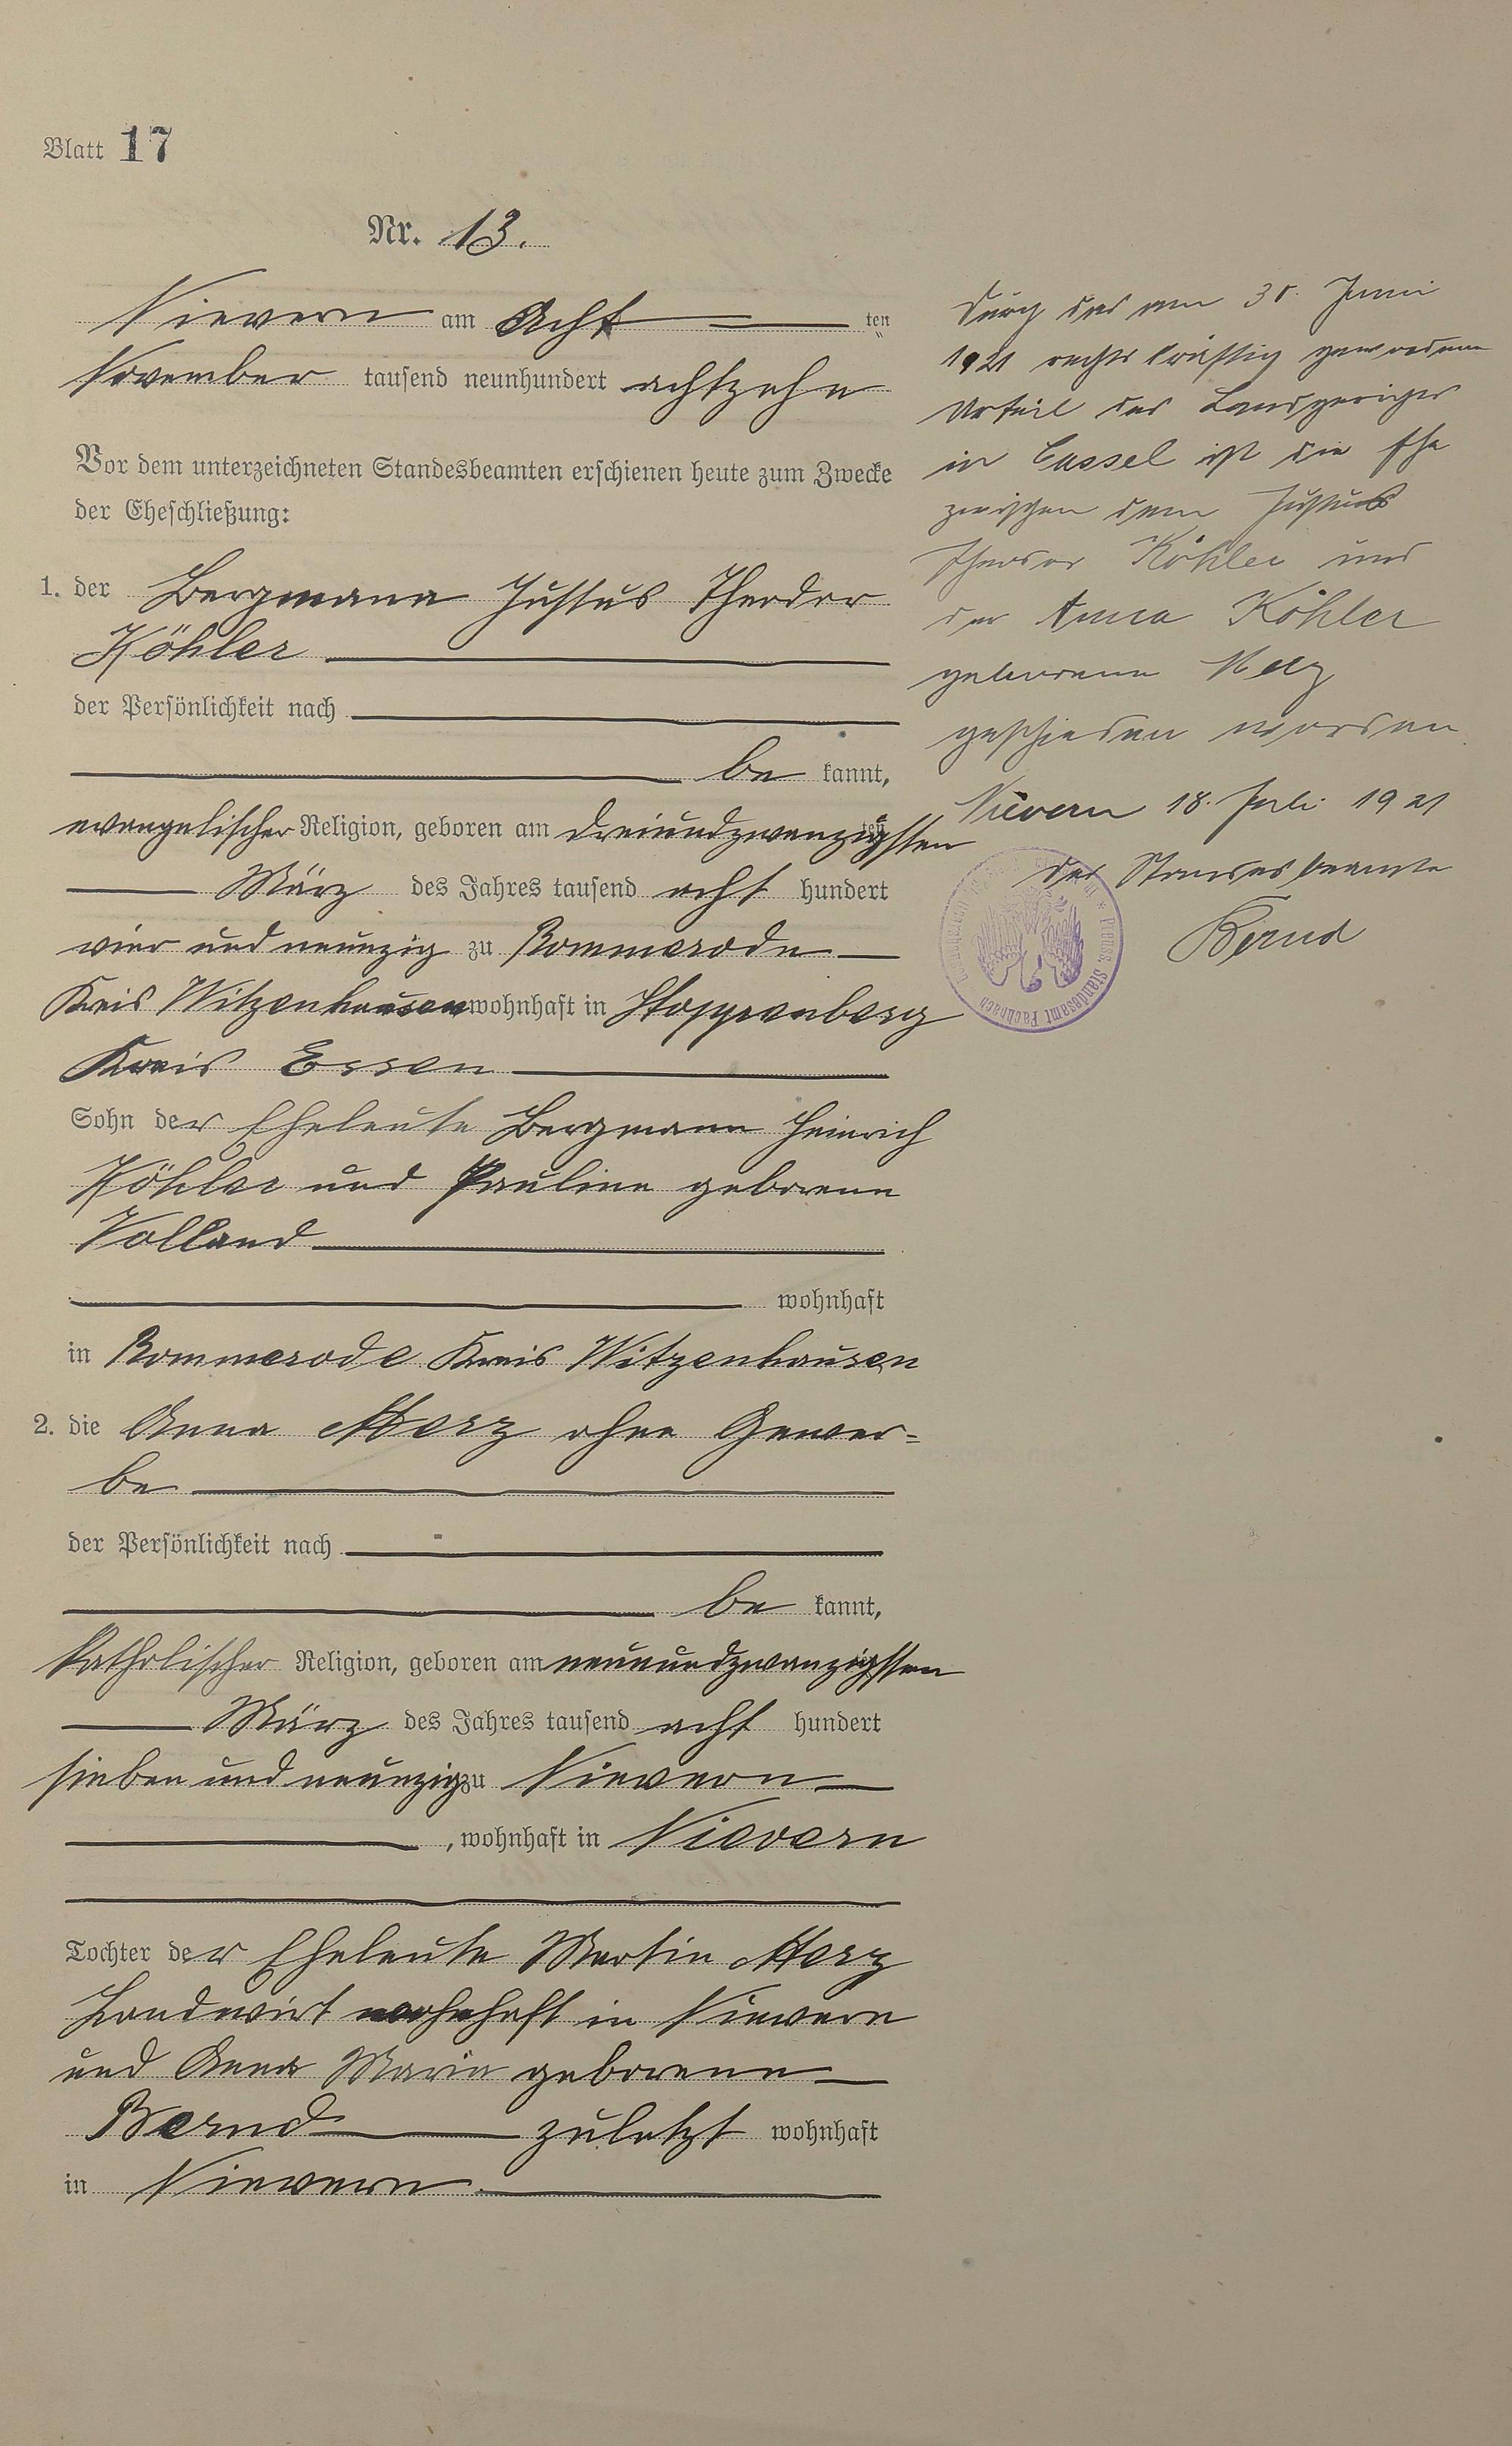 Blatt 17
Nr. 13.
Nievern am Acht ten
November tausend neunhundert achtzehn
Vor dem unterzeichneten Standesbeamten erschienen heute zum Zwecke
der Eheschließung:
1. der Bergmann Justus Theodor
Köhler
der Persönlichkeit nach
be kannt,
evangelischer Religion, geboren am dreiundzwanzigsten
März des Jahres tausend acht hundert
vier und neunzig zu Rommerode
Kreis Witzenhausen wohnhaft in Stoppenberg
Kreis Essen
Sohn der Eheleute Bergmann Heinrich
Köhler und Pauline geborene
Volland
wohnhaft
in Rommerode Kreis Witzenhausen
2. die Anna Merz ohne Gewer=
be
der Persönlichkeit nach
be kannt,
katholischer Religion, geboren am neunundzwanzigsten
März des Jahres tausend acht hundert
sieben und neunzig zu Nievern
, wohnhaft in Nievern
Tochter der Eheleute Martin Merz
Landwirt wohnhaft in Nievern
und Anna Maria geborene
Bernd zuletzt wohnhaft
in Nievern
Durch das am 30. Juni
1921 rechtskräftig gewordene
Urteil des Landgerichts
in Cassel ist die Ehe
zwischen dem Justus
Theodor Köhler und
der Anna Köhler
geborene Merz
geschieden worden.
Nievern 18. Juli 1921
Der Standesbeamte
Bernd
Preuss. Standesamt Fachbach